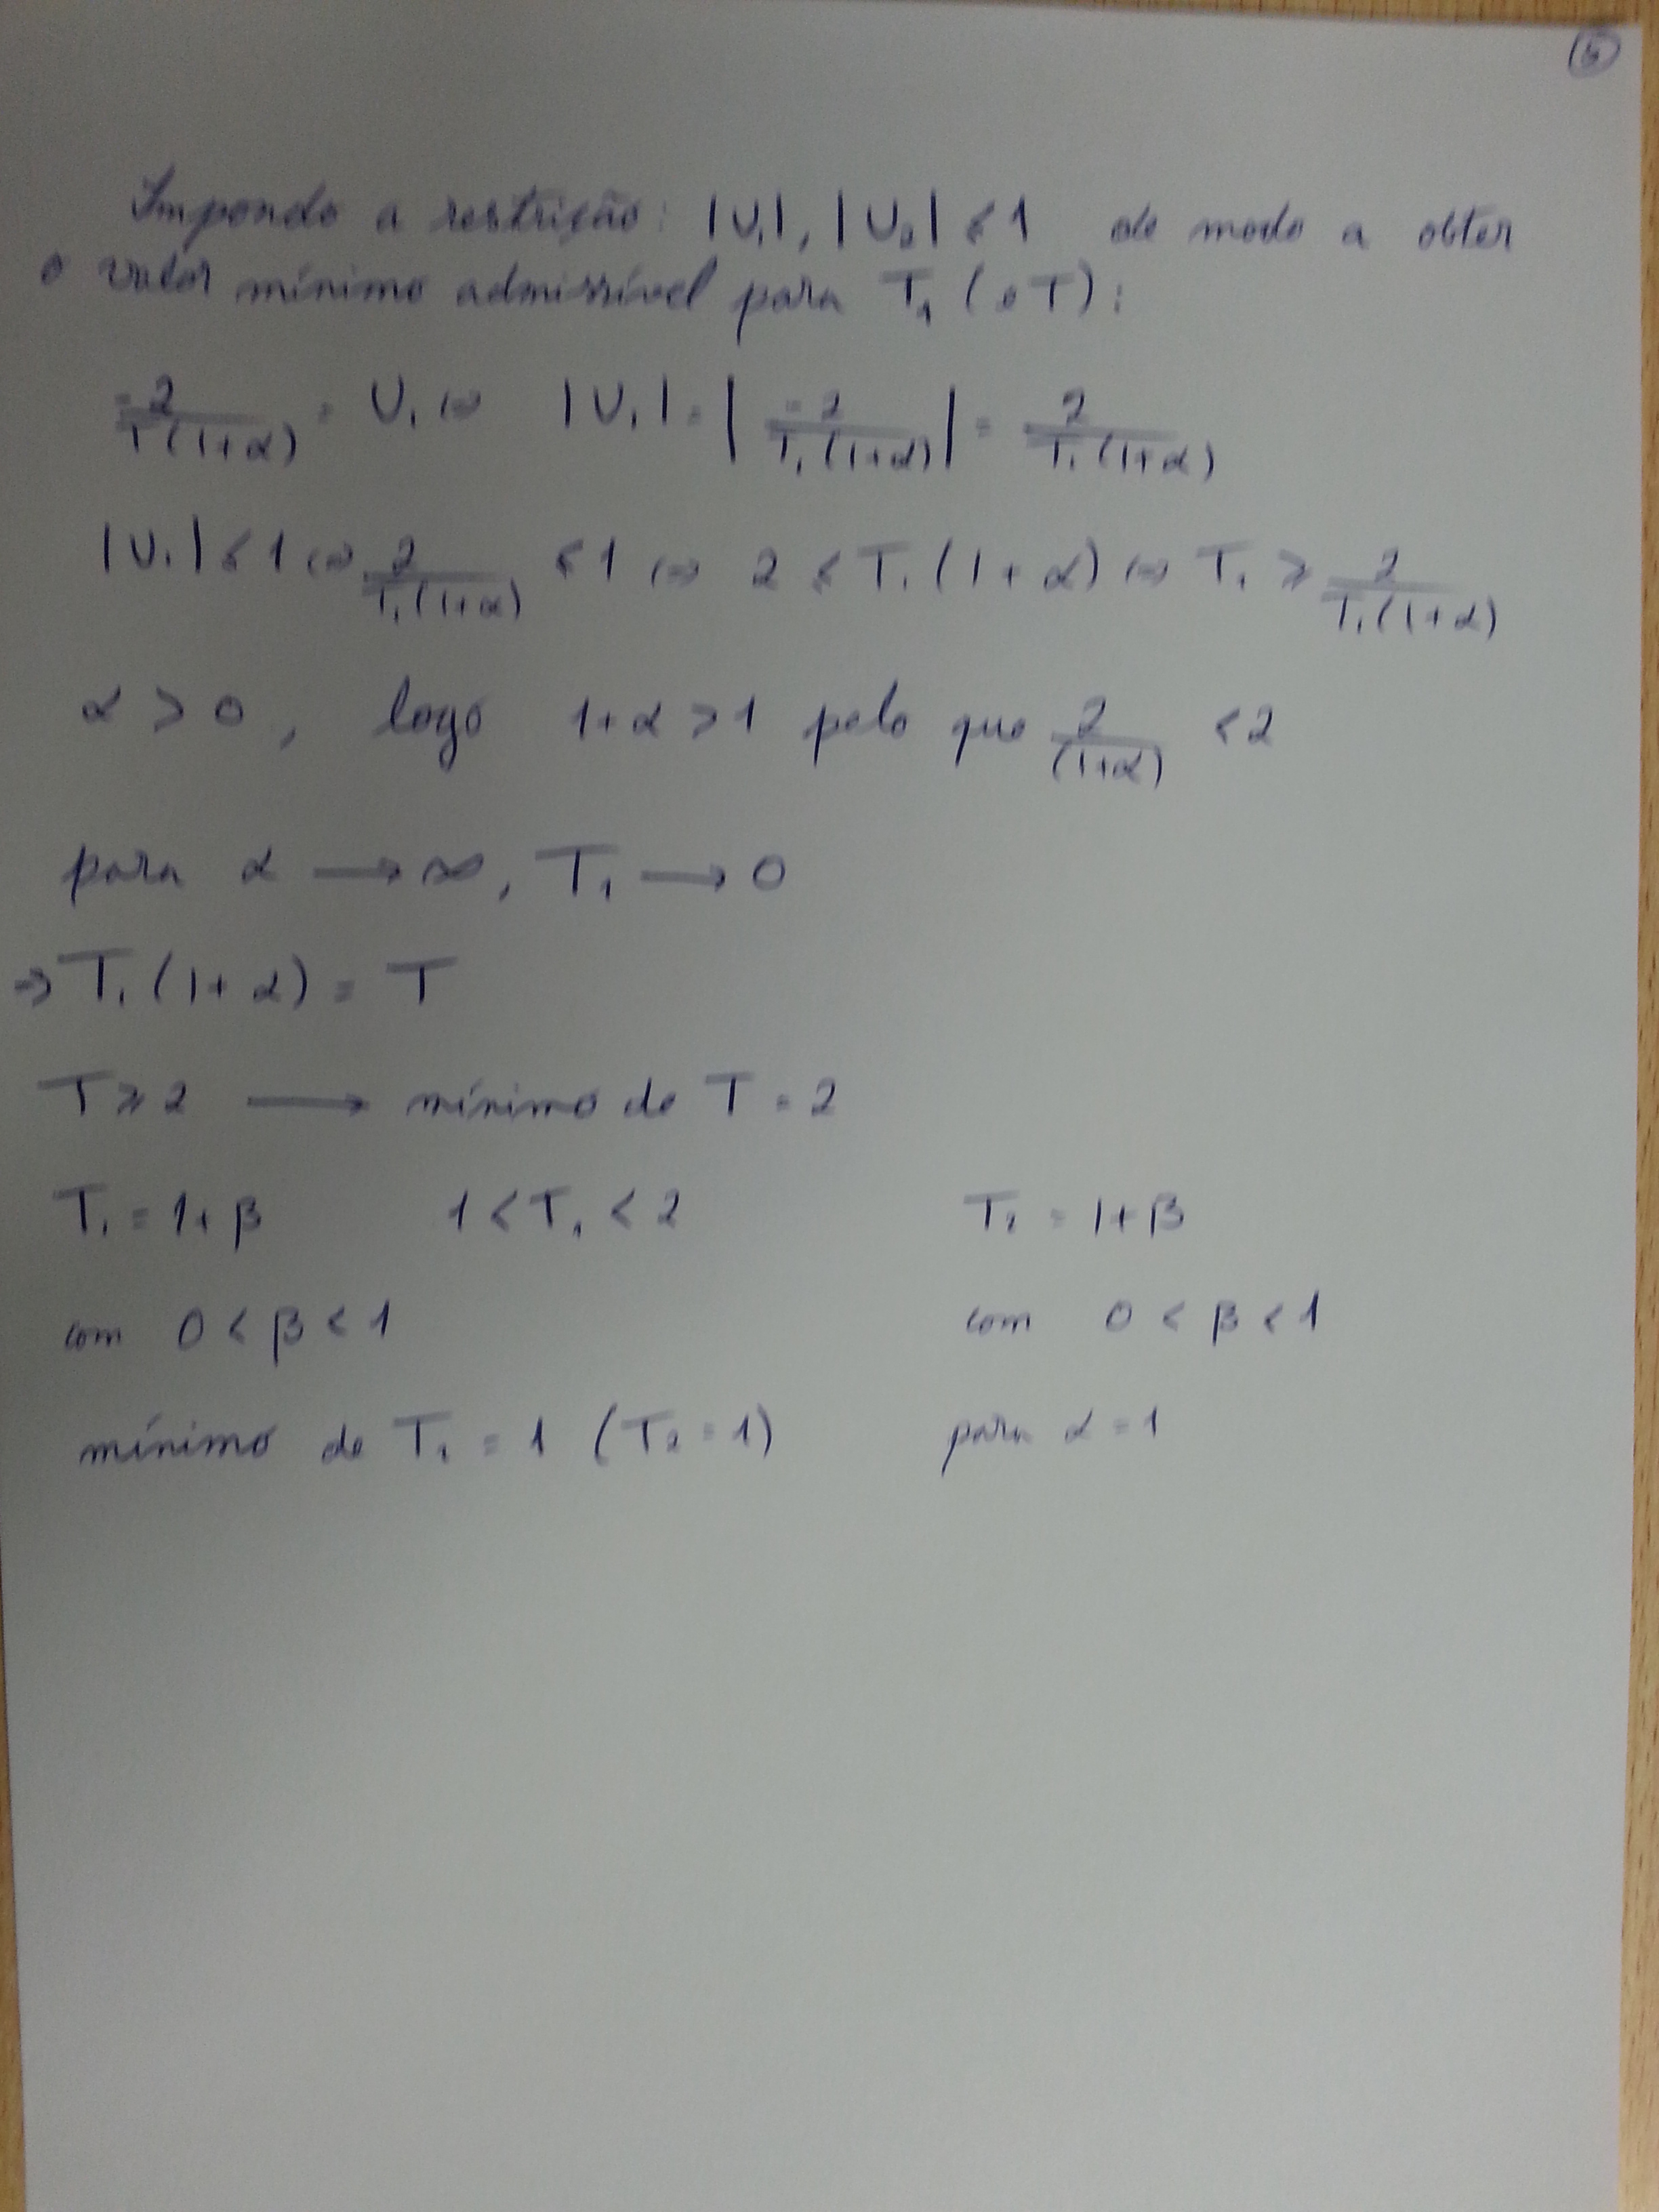 5
Impondo a restrição: |U₁|, |U₂| ≤ 1 de modo a obter
o valor mínimo admissível para T₁ (e T):
-2/T(1+α) = U₁ ⇔ |U₁| = |-2/T₁(1+α)| = 2/T₁(1+α)
|U₁| ≤ 1 ⇔ 2/T₁(1+α) ≤ 1 ⇔ 2 ≤ T₁(1+α) ⇔ T₁ ≥ 2/T₁(1+α)
α > 0, logo 1+α > 1 pelo que 2/(1+α) < 2
para α → ∞, T₁ → 0
⇒ T₁(1+α) = T
T ≥ 2 → mínimo de T = 2
T₁ = 1+β 1 < T₁ < 2 T₂ = 1+β
com 0 < β < 1 com 0 < β < 1
mínimo de T₁ = 1 (T₂ = 1) para α = 1